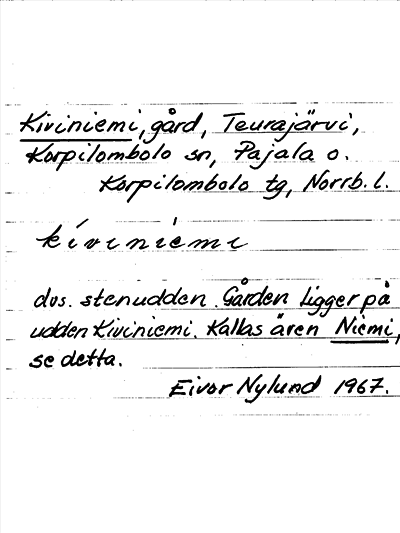 Kiviniemi, gård, Teurajärvi,
Korpilombolo sn, Pajala o.
Korpilombolo tg, Norrb. l.
kívinièmi
dvs. stenudden. Gården ligger på
udden Kiviniemi. Kallas även Niemi,
se detta.
Eivor Nylund 1967.